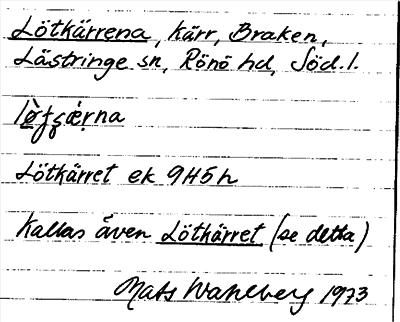 Lötkärrena, kärr, Braken,
Lästringe sn, Rönö hd, Söd.l.
Lötkärret ek 9H5h
Kallas även Lötkärret (se detta)
Mats Wahlberg 1973